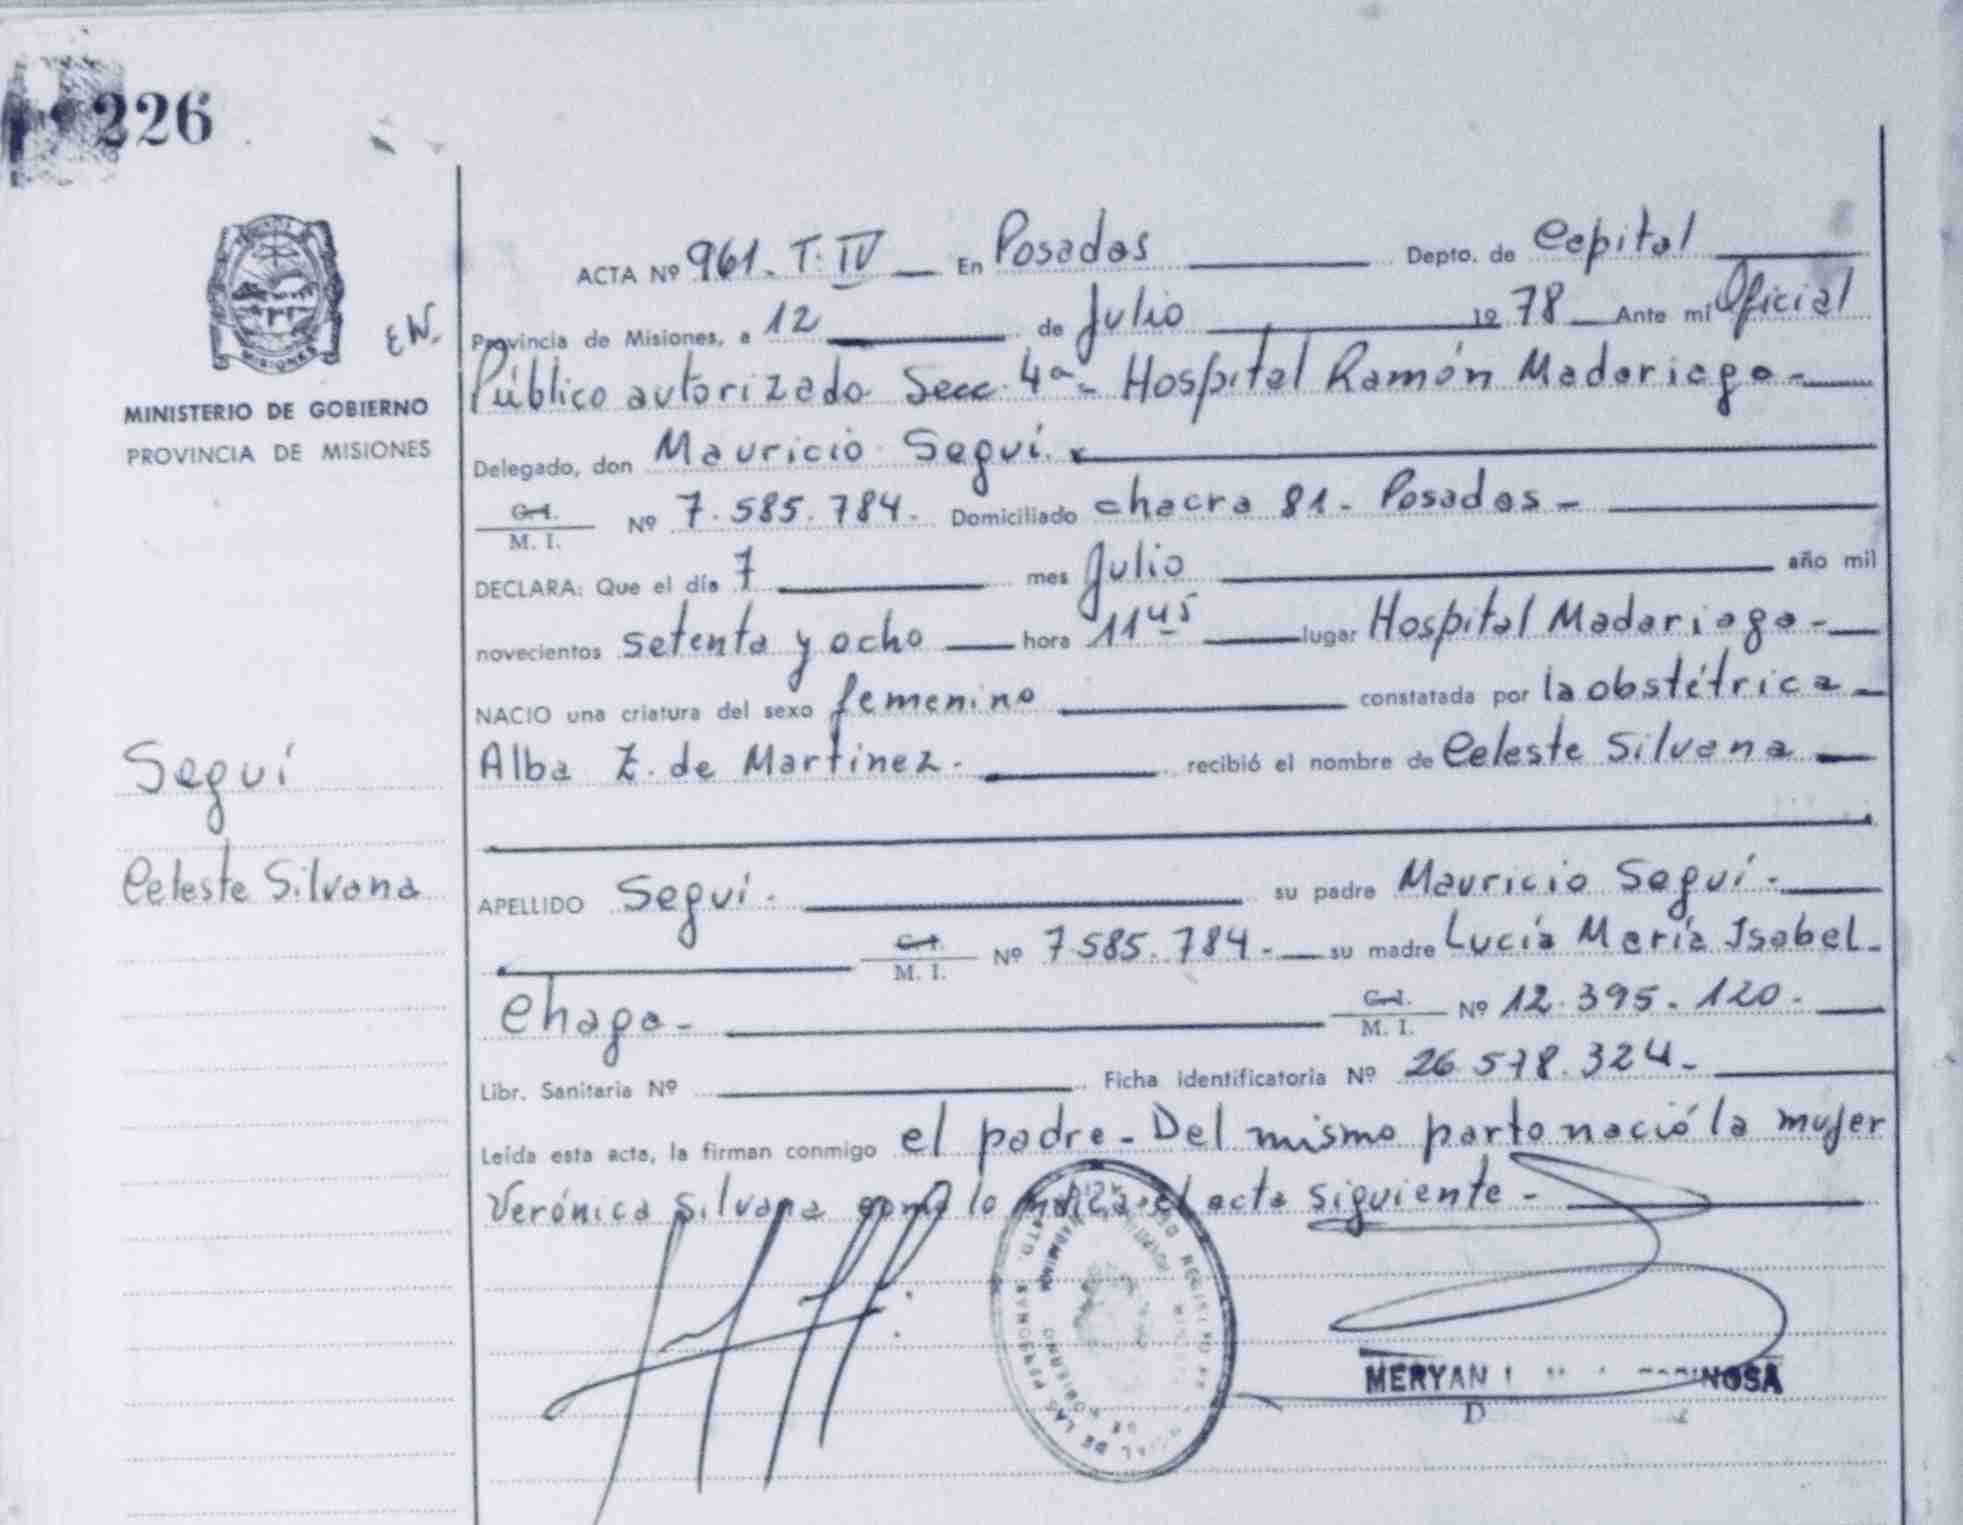 226
MISIONES
EW.
MINISTERIO DE GOBIERNO
PROVINCIA DE MISIONES
ACTA Nº 961. T. IV — En Posadas — Depto. de Capital
Provincia de Misiones, a 12 — de Julio — 1978 — Ante mi Oficial
Público autorizado Secc. 4ª - Hospital Ramón Madariaga -
Delegado, don Mauricio Seguí. -
C. I.
M. I. Nº 7.585.784. Domiciliado chacra 81 - Posadas -
DECLARA: Que el día 7 — mes Julio — año mil
novecientos setenta y ocho — hora 11 45 — lugar Hospital Madariaga -
NACIO una criatura del sexo femenino — constatada por la obstétrica -
Alba Z. de Martinez. — recibió el nombre de Celeste Silvana —
Seguí
Celeste Silvana
APELLIDO Seguí. — su padre Mauricio Seguí. -
C. I.
M. I. Nº 7.585.784. - su madre Lucía María Isabel
Chaga - C. I.
M. I. Nº 12.395.120. -
Libr. Sanitaria Nº — Ficha identificatoria Nº 26.578.324 -
Leída esta acta, la firman conmigo el padre - Del mismo parto nació la mujer
Verónica Silvana como lo indica el acta siguiente -
DE LAS PERSONAS
GOBIERNO
MERYAN